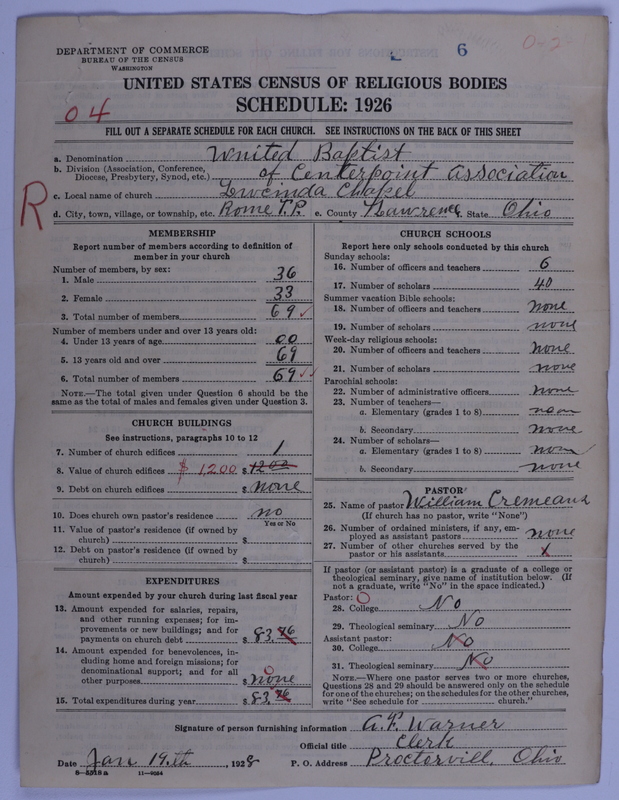 DEPARTMENT OF COMMERCE
BUREAU OF THE CENSUS
WASHINGTON
6
0-2
UNITED STATES CENSUS OF RELIGIOUS BODIES
SCHEDULE: 1926
04
FILL OUT A SEPARATE SCHEDULE FOR EACH CHURCH. SEE INSTRUCTIONS ON THE BACK OF THIS SHEET
R
a. Denomination United Baptist
b. Division (Association, Conference, Diocese, Presbytery, Synod, etc.) of Centerpoint Association
c. Local name of church Lucinda Chapel
d. City, town, village, or township, etc. Rome T.P. e. County Lawrence State Ohio
MEMBERSHIP
Report number of members according to definition of
member in your church
Number of members, by sex:
1. Male 36
2. Female 33
3. Total number of members 69 ✓
Number of members under and over 13 years old:
4. Under 13 years of age 00
5. 13 years old and over 69
6. Total number of members 69 ✓✓
NOTE.—The total given under Question 6 should be
same as the total of males and females given under Question 3.
CHURCH BUILDINGS
See instructions, paragraphs 10 to 12
7. Number of church edifices 1
8. Value of church edifices $1,200 $1200
9. Debt on church edifices $ none
10. Does church own pastor's residence no
Yes or No
11. Value of pastor's residence (if owned by
church) $
12. Debt on pastor's residence (if owned by
church) $
EXPENDITURES
Amount expended by your church during last fiscal year
13. Amount expended for salaries, repairs,
and other running expenses; for im-
provements or new buildings; and for
payments on church debt $ 83.
14. Amount expended for benevolences, in-
cluding home and foreign missions; for
denominational support; and for all
other purposes 0 $ none
15. Total expenditures during year $ 83.
CHURCH SCHOOLS
Report here only schools conducted by this church
Sunday schools:
16. Number of officers and teachers 6
17. Number of scholars 40
Summer vacation Bible schools:
18. Number of officers and teachers none
19. Number of scholars none
Week-day religious schools:
20. Number of officers and teachers none
21. Number of scholars none
Parochial schools:
22. Number of administrative officers none
23. Number of teachers—
a. Elementary (grades 1 to 8)
b. Secondary none
24. Number of scholars—
a. Elementary (grades 1 to 8) none
b. Secondary none
PASTOR
25. Name of pastor William Cremeans
(If church has no pastor, write "None")
26. Number of ordained ministers, if any, em-
ployed as assistant pastors none
27. Number of other churches served by the
pastor or his assistants x
If pastor (or assistant pastor) is a graduate of a college or
theological seminary, give name of institution below. (If
not a graduate, write "No" in the space indicated.)
Pastor: 0
28. College No
29. Theological seminary No
Assistant pastor:
30. College No
31. Theological seminary No
NOTE.—Where one pastor serves two or more churches,
Questions 28 and 29 should be answered only on the schedule
for one of the churches; on the schedules for the other churches,
write "See schedule for church."
Signature of person furnishing information A.P. Warner
Official title Clerk
Date Jan 19th, 1928 P. O. Address Proctorvill, Ohio
8—5318 a 11—9034